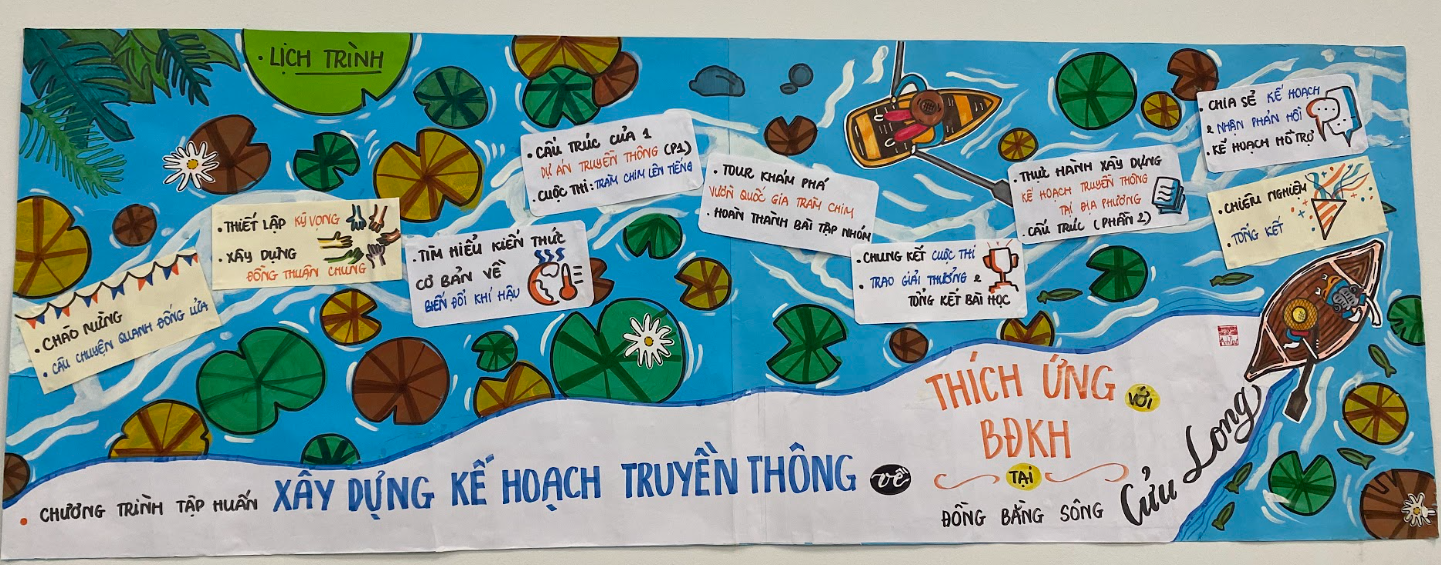 • LỊCH TRÌNH
• CHÀO MỪNG
• CÂU CHUYỆN QUANH ĐỐNG LỬA
• THIẾT LẬP KỲ VỌNG
• XÂY DỰNG
ĐỒNG THUẬN CHUNG
• TÌM HIỂU KIẾN THỨC
CƠ BẢN VỀ
BIẾN ĐỔI KHÍ HẬU
• CẤU TRÚC CỦA 1
DỰ ÁN TRUYỀN THÔNG (P1)
• CUỘC THI: TRÀM CHIM LÊN TIẾNG
• TOUR KHÁM PHÁ
VƯỜN QUỐC GIA TRÀM CHIM
• HOÀN THÀNH BÀI TẬP NHÓM
• CHUNG KẾT CUỘC THI
• TRAO GIẢI THƯỞNG &
TỔNG KẾT BÀI HỌC
• THỰC HÀNH XÂY DỰNG
KẾ HOẠCH TRUYỀN THÔNG
TẠI ĐỊA PHƯƠNG
• CẤU TRÚC (PHẦN 2)
• CHIA SẺ KẾ HOẠCH
& NHẬN PHẢN HỒI
• KẾ HOẠCH HỖ TRỢ
• CHIÊM NGHIỆM
• TỔNG KẾT
• CHƯƠNG TRÌNH TẬP HUẤN XÂY DỰNG KẾ HOẠCH TRUYỀN THÔNG về
THÍCH ỨNG VỚI
BĐKH
TẠI
ĐỒNG BẰNG SÔNG Cửu Long